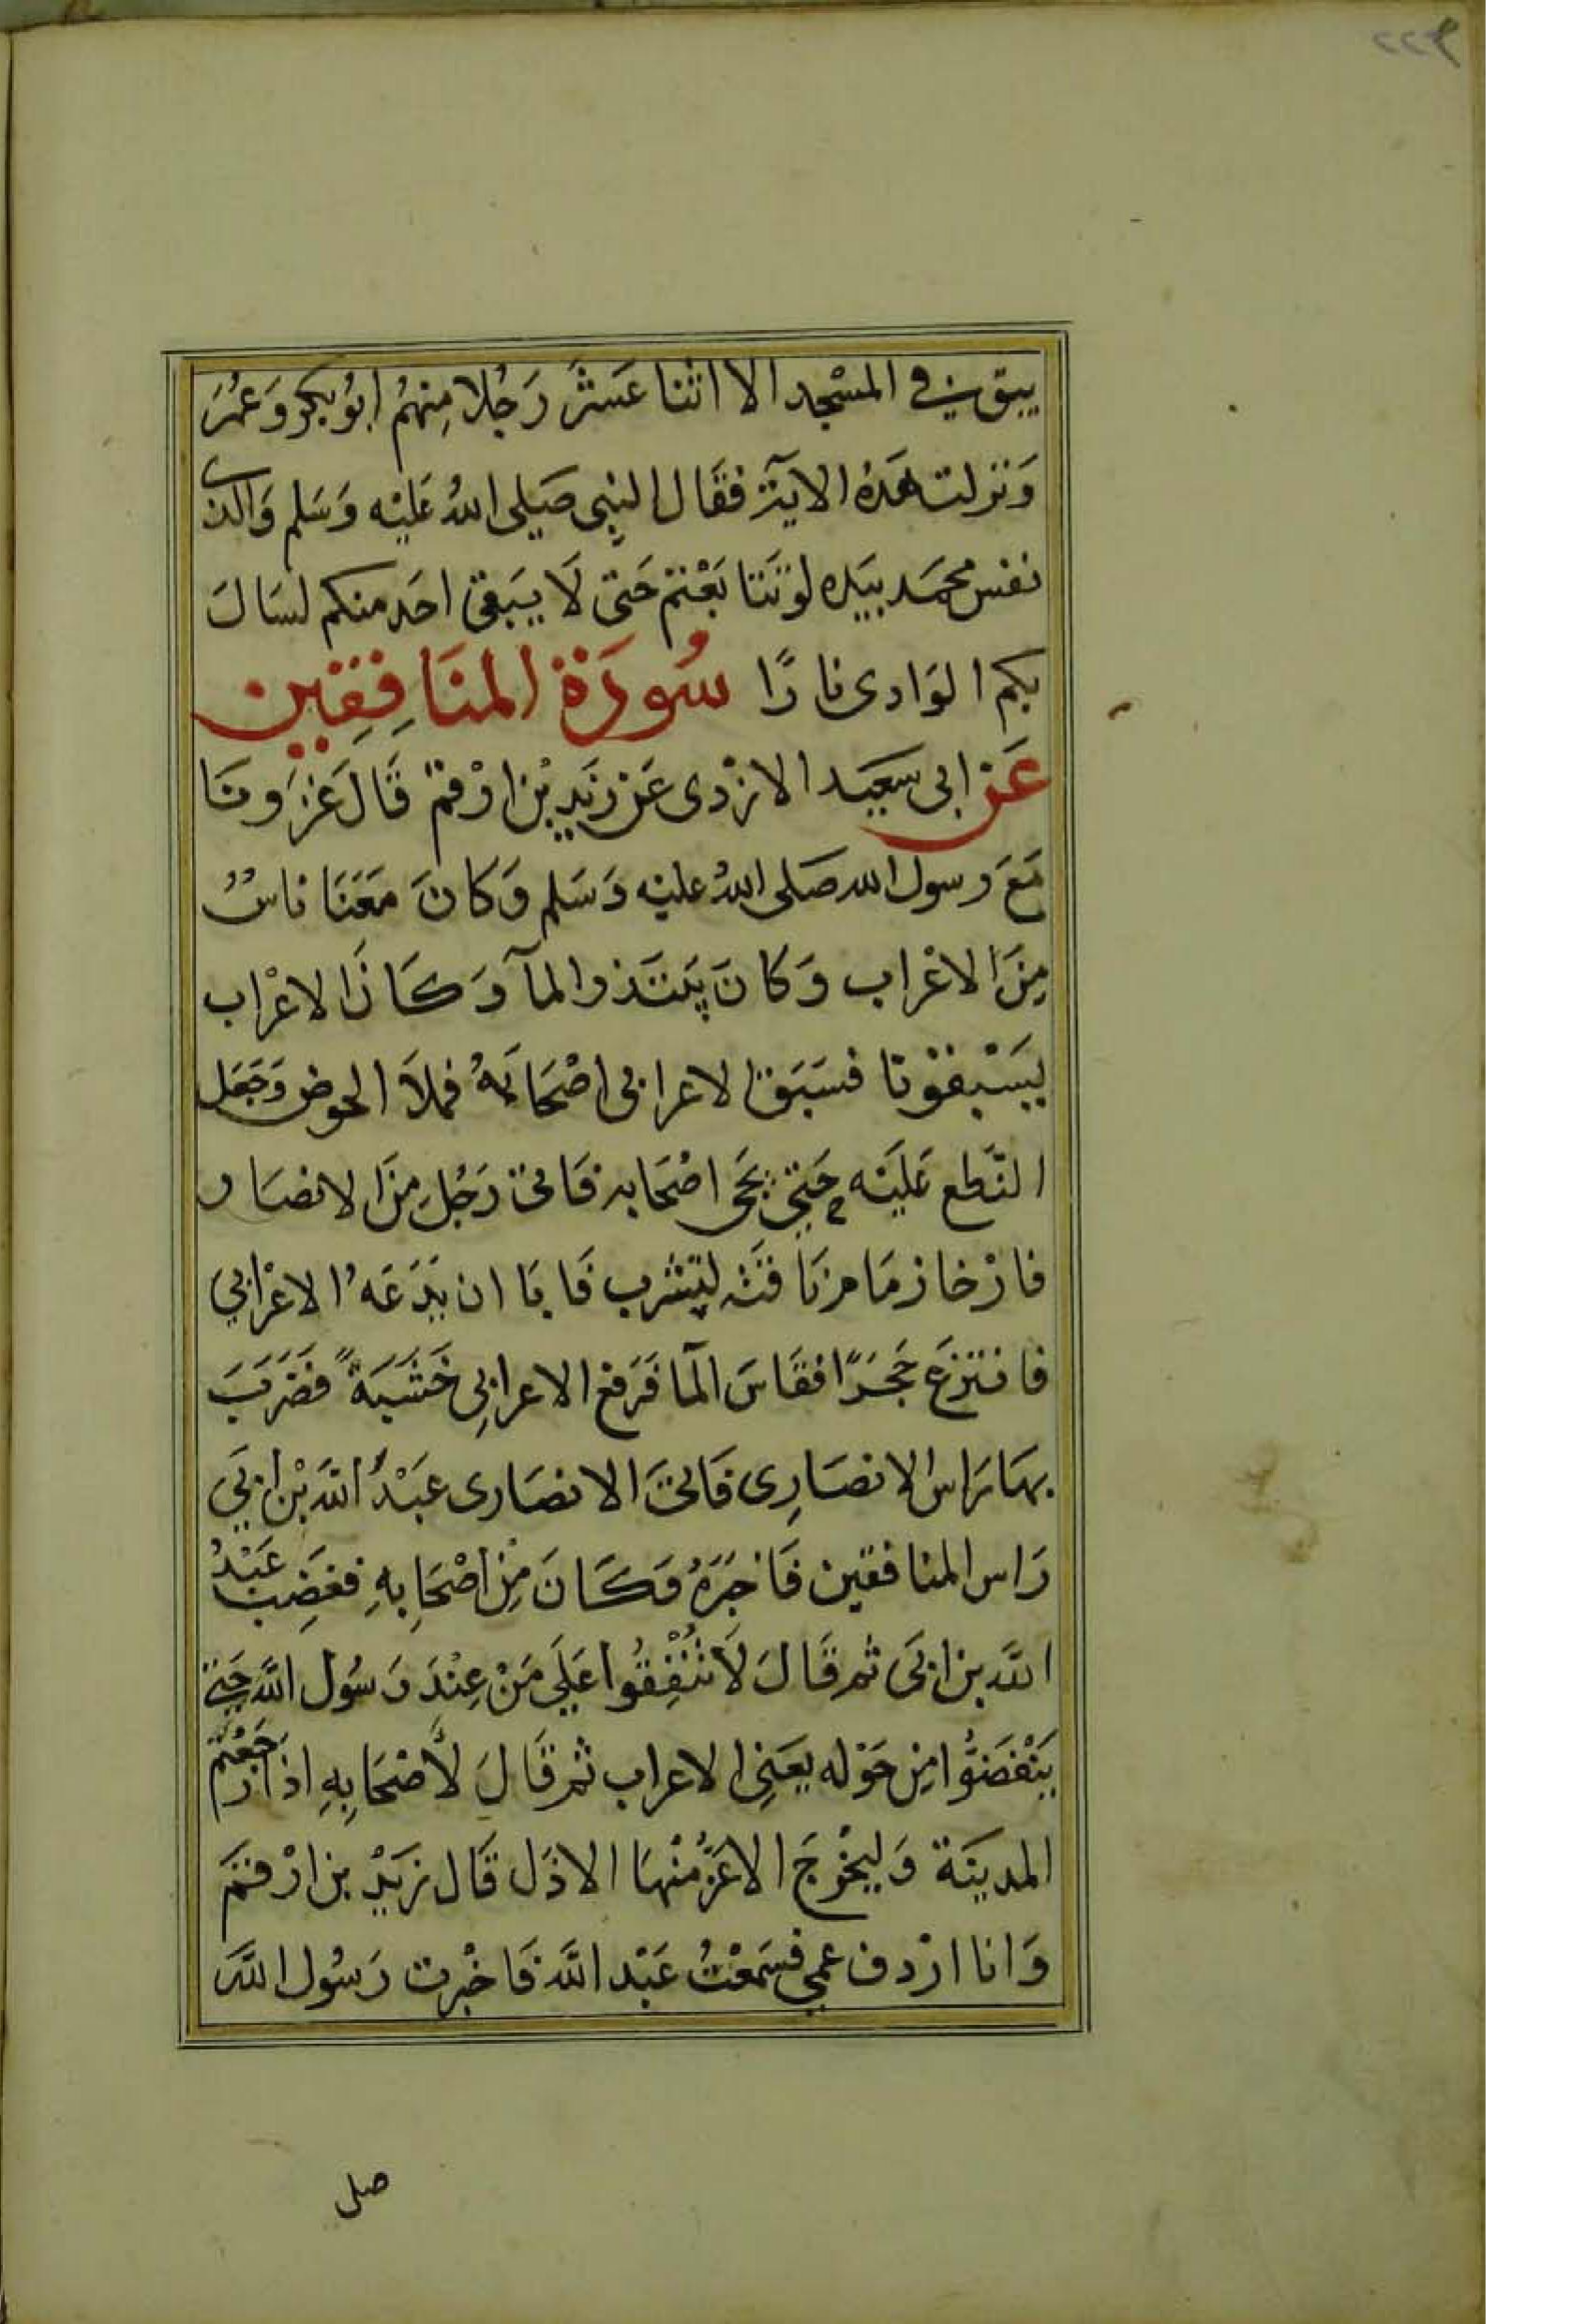 ٢٢٤
يبق في المسْجد الا اثنا عَشَرَ رَجُلا مِنهُم ابُو بكر وَعُمَرَ
وَنزلت هَذه الايَة فقَال النبِى صَلى اللهُ عَليْه وَسَلم وَالذى
نفس محمَد بيَده لوتَتَا بَعْتم حَتى لَا يَبَقى احَد منكم لسَالَ
بكم الوَادى نارًا سُورَة المنَافِقِين
عَن ابى سَعيَد الازْدى عَن زيَد بْن ارْقم قَال غَزَونَا
مَعَ رسول الله صَلى اللهُ عليْه وَسَلم وَكانَ مَعَنَا ناسٌ
مِنَ الاعْراب وَكانَ يَبتَدر المآ وَكَانَ الاعْراب
يَسْبقوْنا فسَبَق الاعرابى اصْحَابَهُ فملاَ الحوض وَجَعَل
النّطع عَليَه حَتى يَجى اصْحَابه فَاتى رَجُل مِنَ الانصَار
فارْخا زمَامر نَاقتَه لتشْرب فَابَا ان يَدَعَهُ الاعْرابي
فانتزعَ حَجَرًا فقَاسَ المآ فَرَفع الاعرابِى خَشَبَةً فضَرَبَ
بهَا رَاس الانصَارِى فَاتىَ الانصَارى عَبْدُ اللَه بْن ابَى
رَاس المنافقين فَاخبَرَهُ وَكَانَ مِن اصْحَابِهِ فغَضِبَ عَبْدُ
اللَه بن ابَى ثم قَالَ لَا تُنْفِقُوا عَلَى مَنْ عِنْدَ رَسُول اللَه حَتى
يَنْفَضوُّا مِن حَوْله يعَنى الاعراب ثم قَالَ لأَصْحَابِهِ اذا رَجَعْتم
المدينَة وَليخْرجَ الاعَزُّ مُنْهَا الاذَل قَال زيَدْ بن ارْقَمَ
وَانا ارْدف عمى فسَمعْتُ عَبْد اللَه فَاخبْرت رَسُول اللَه
صلى